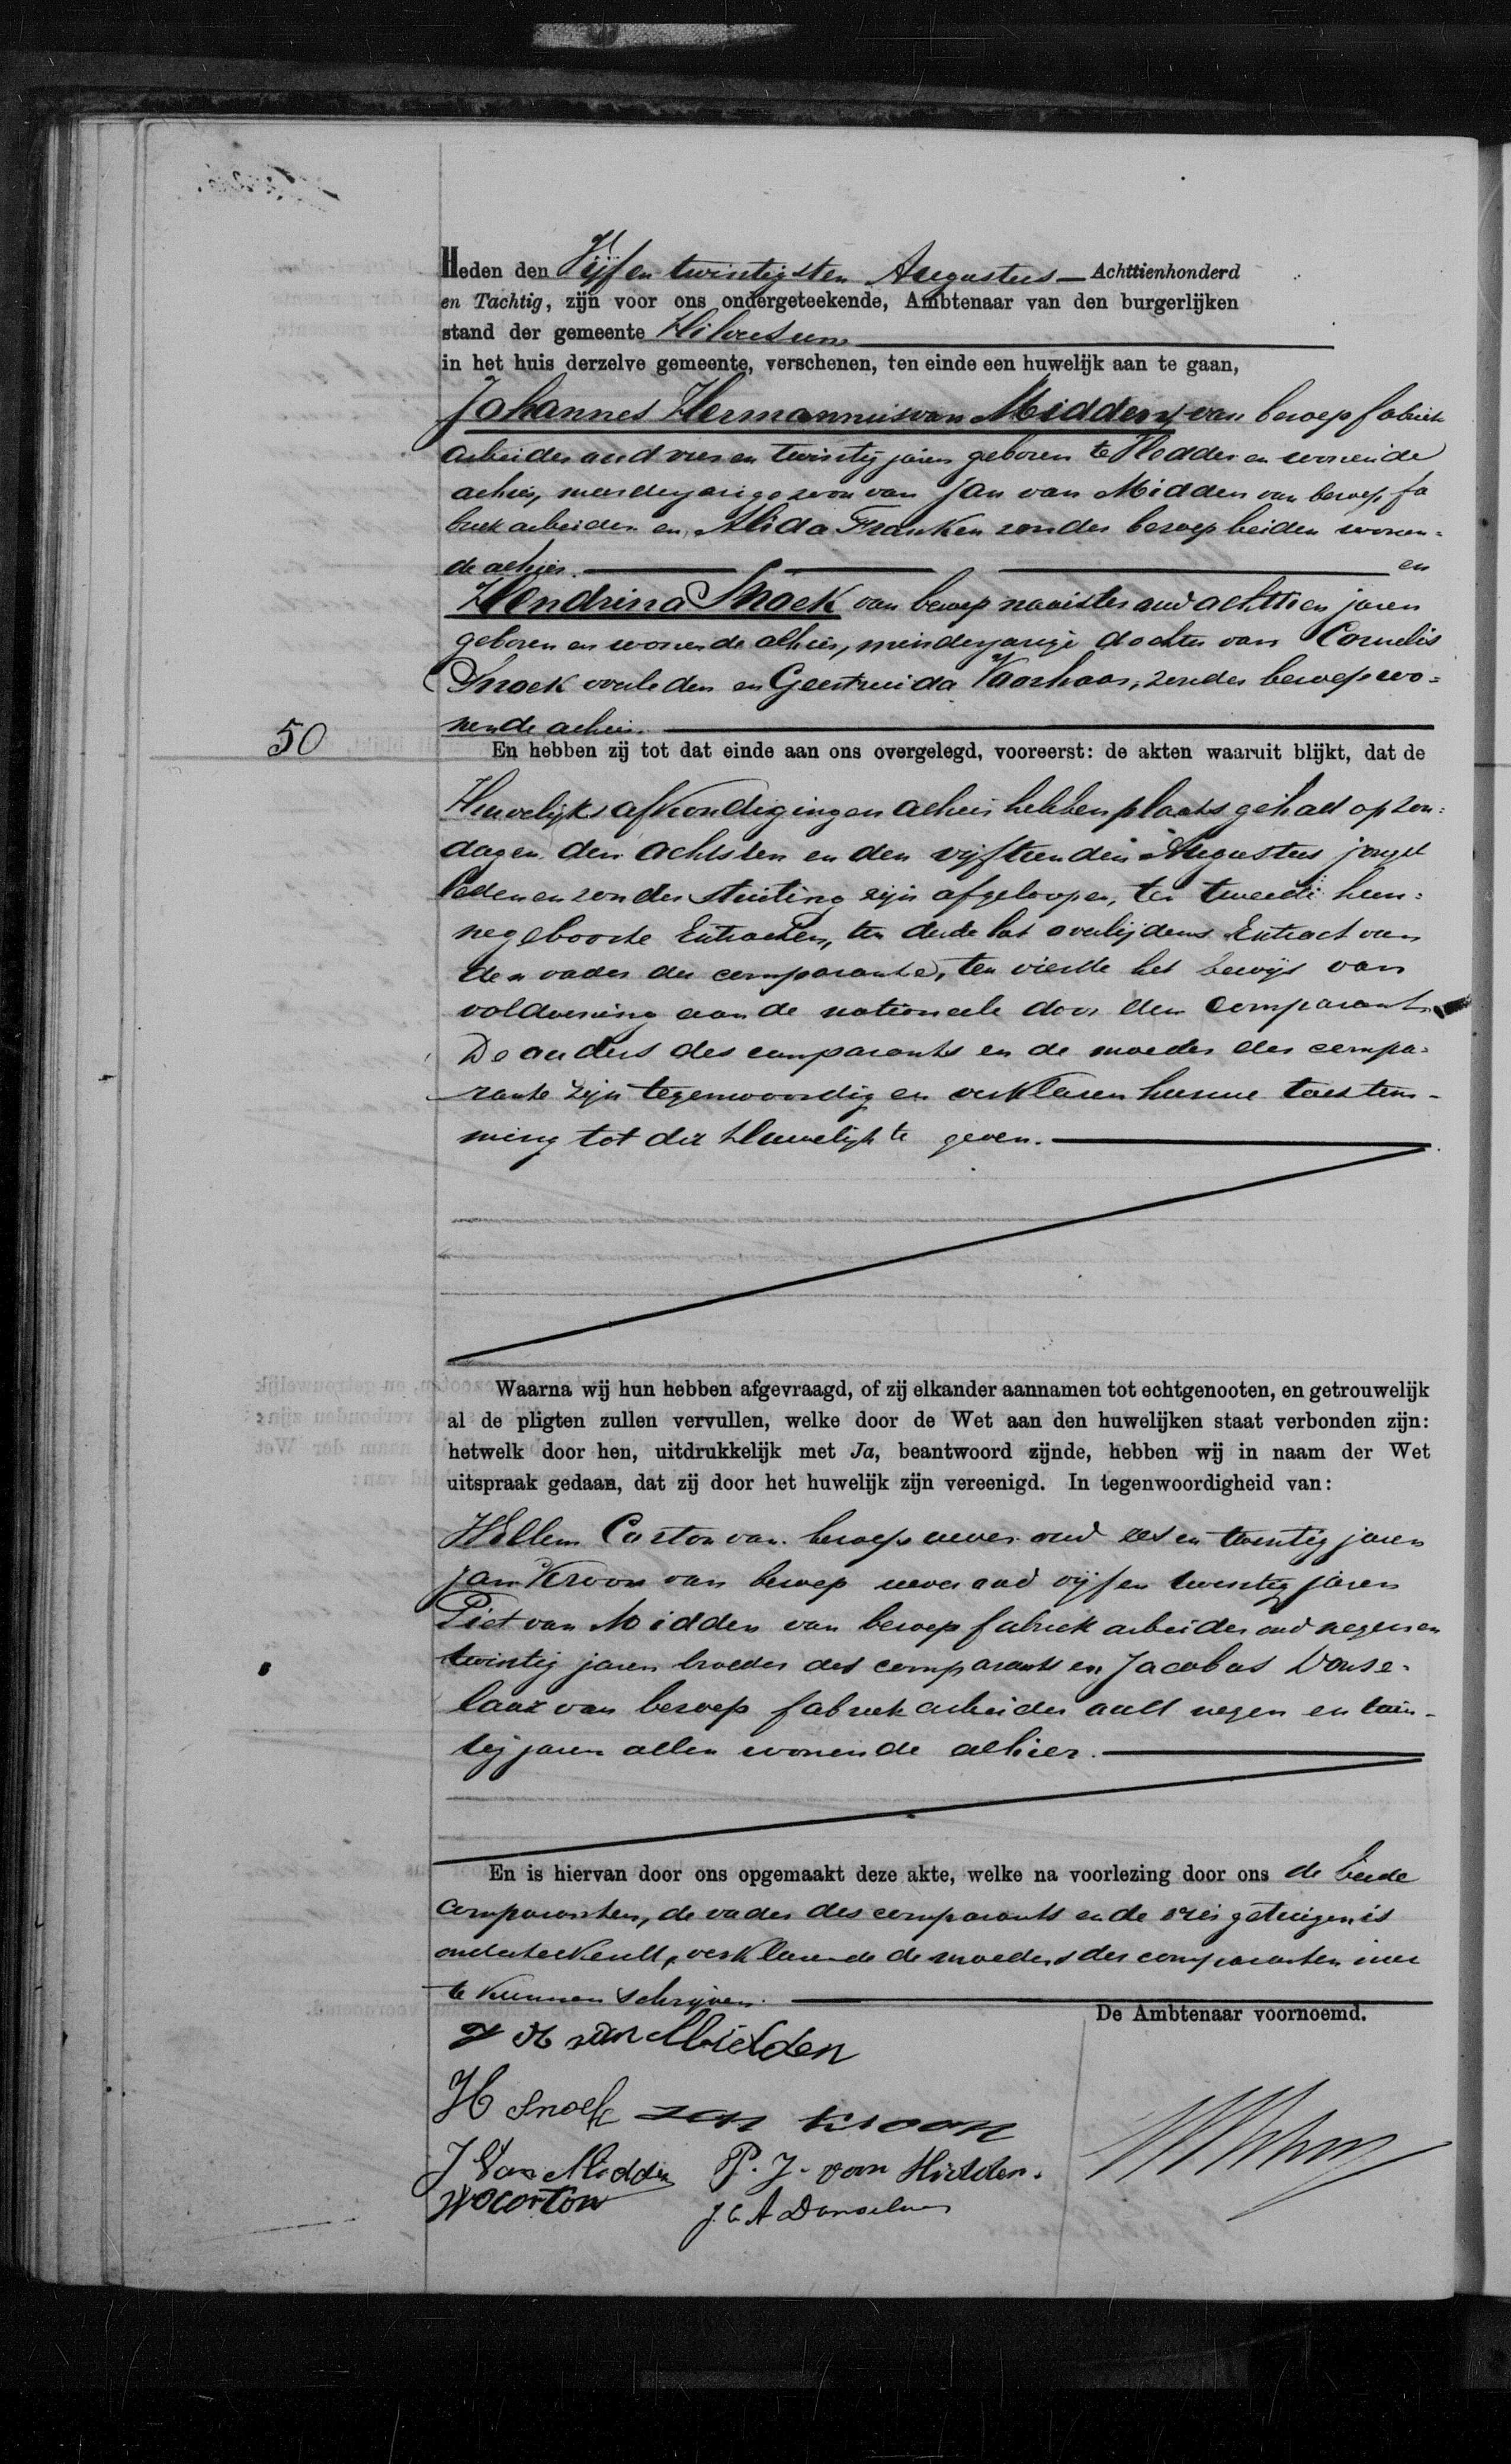 Heden den Vijf en twintigsten Augustus Achttienhonderd
en Tachtig, zijn voor ons ondergeteekende, Ambtenaar van den burgerlijken
stand der gemeente Hilversum
in het huis derzelve gemeente, verschenen, ten einde een huwelijk aan te gaan,
Johannes Hermannus van Midden, van beroep fabriek
arbeider oud vier en twintig jaren geboren te en wonende
alhier, meerderjarige zoon van Jan van Midden van beroep fa
briek arbeider en Alida Franken zonder beroep beiden wonen=
de alhier. en
Hendrina Snoek van beroep naaister oud achttien jaren
geboren en wonende alhier, minderjarige dochter van Cornelis
Snoek overleden en Geertruida Voorhaar, zonder beroep wo=
nende alhier.
50
En hebben zij tot dat einde aan ons overgelegd, vooreerst: de akten waaruit blijkt, dat de
Huwelijks afkondigingen alhier hebben plaats gehad op zon=
dagen den achtsten en den vijftienden Augustus jongst
leden en zonder stuiting zijn afgeloopen, ten tweede hun=
ne geboorte Extracten, ten derde het overlijdens Extract van
den vader der comparante, ten vierde het bewijs van
voldoening aan de nationale door den comparant.
De ouders des comparants en de moeder der compa=
rante zijn tegenwoordig en verklaren hunne toestem=
ming tot dit Huwelijk te geven.
Waarna wij hun hebben afgevraagd, of zij elkander aannamen tot echtgenooten, en getrouwelijk
al de pligten zullen vervullen, welke door de Wet aan den huwelijken staat verbonden zijn:
hetwelk door hen, uitdrukkelijk met Ja, beantwoord zijnde, hebben wij in naam der Wet
uitspraak gedaan, dat zij door het huwelijk zijn vereenigd. In tegenwoordigheid van:
Willem Corton van beroep wever oud zes en twintig jaren
Jan Kroon van beroep wever oud vijf en twintig jaren
Piet van Midden van beroep fabriek arbeider oud negen en
twintig jaren broeder des comparants en Jacobus Donse=
laar van beroep fabriek arbeider oud negen en twin=
tig jaren allen wonende alhier.
En is hiervan door ons opgemaakt deze akte, welke na voorlezing door ons de beide
comparanten, de vader des comparants en de vier getuigen is
onderteekend, verklarende de moeders der comparanten niet
te kunnen schrijven.
De Ambtenaar voornoemd.
J H van Midden
H Snoek Jan Kroon
J Van Midden P. J. van Midden.
W Corton J. C A Donselaar